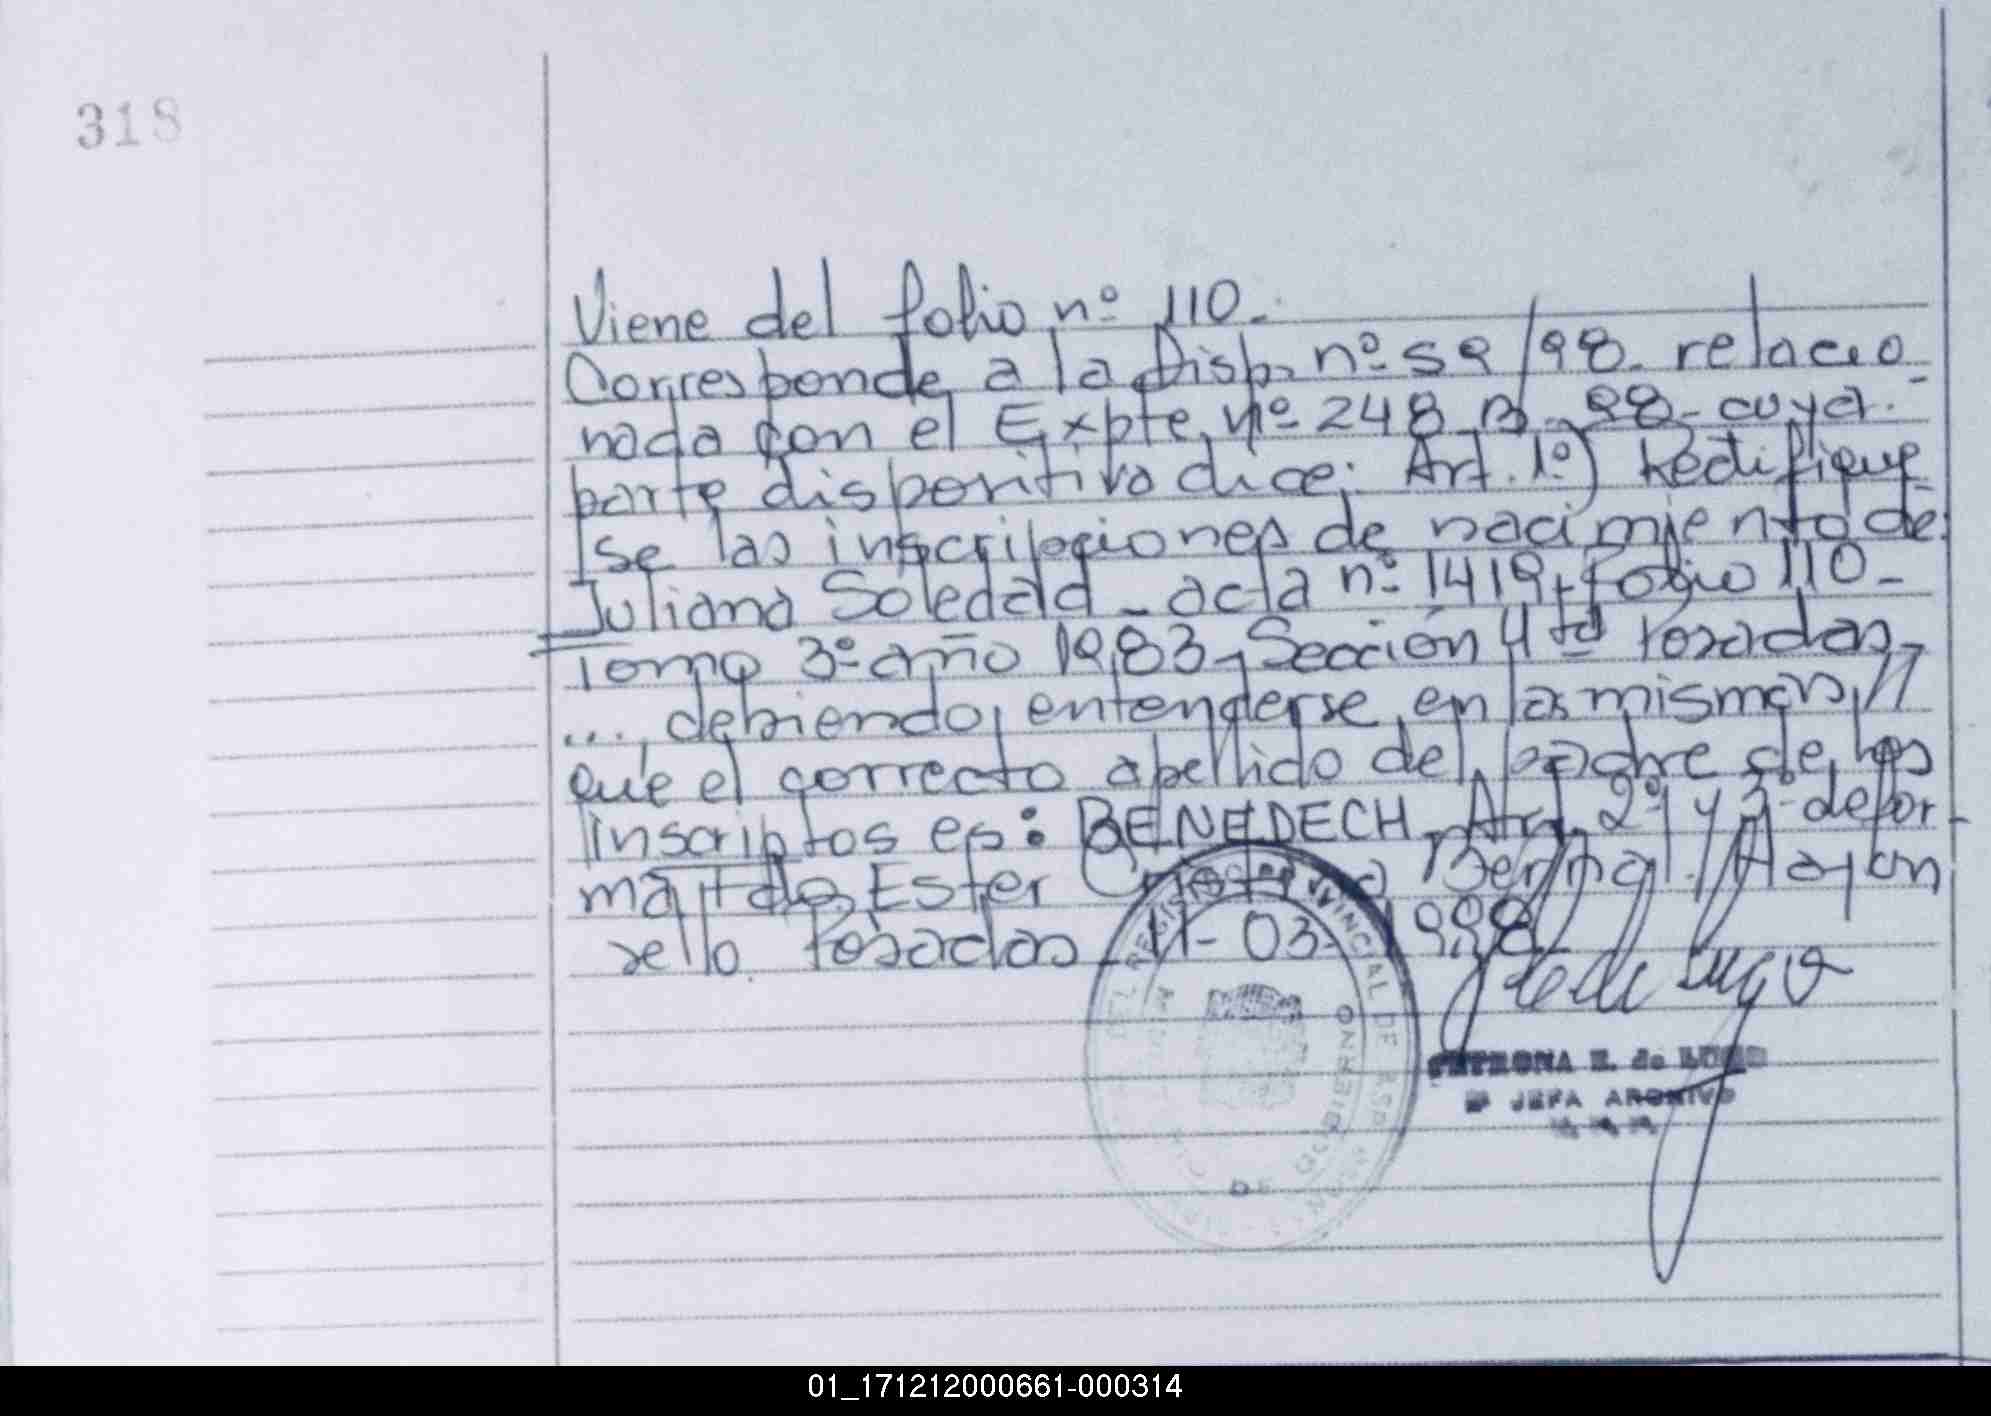 318
Viene del folio nº 110.
Corresponde a la Disp. nº 59/98. relacio
nada con el Expte nº 248 B - 98 - cuya.
parte dispositiva dice: Art. 1º) Rectifique
se las inscripciones de nacimiento de
Juliana Soledad - acta nº 1419, folio 110 -
Tomo 3º año 1983, Sección 4ta Posadas,
..., debiendo entenderse en las mismas, //
que el correcto apellido del padre de los
inscriptos es: BENEDECH. Art. 2º y 3º de for-
ma Fdo Ester Bernal. Hay un
sello Posadas 11 - 03 - 1998
de Lugo
PETRONA E. de LUGO
JEFA ARCHIVO
DEL REGISTRO PROVINCIAL DE
DE GOBIERNO
01_171212000661-000314